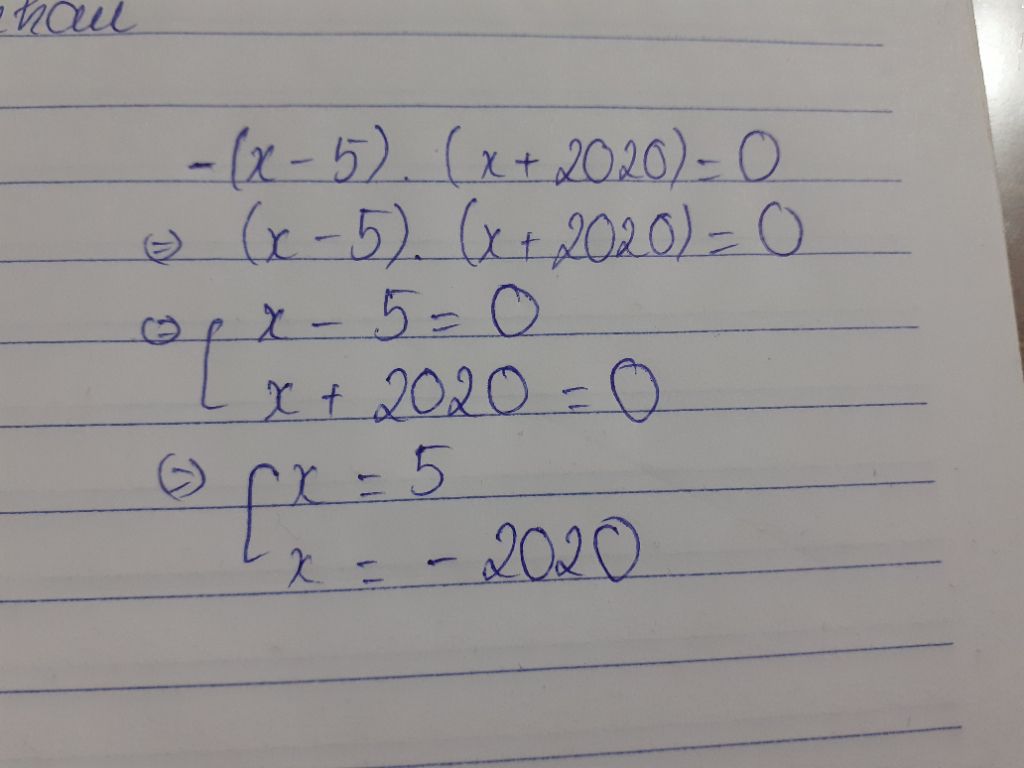 -(x - 5) . (x + 2020) = 0
⇔ (x - 5) . (x + 2020) = 0
⇔ [ x - 5 = 0
x + 2020 = 0
⇔ [ x = 5
x = - 2020